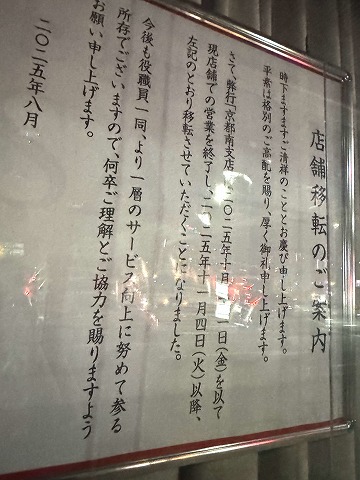 店舗移転のご案内
時下ますますご清祥のこととお慶び申し上げます。
平素は格別のご高配を賜り、厚く御礼申し上げます。
さて、弊行「京都南支店」 二〇二五年十月 一日(金)を以て
現店舗での営業を終了し、二〇二五年十一月四日(火)以降、
左記のとおり移転させていただくことになりました。
今後も役職員一同、より一層のサービス向上に努めて参る
所存でございますので、何卒ご理解とご協力を賜りますよう
お願い申し上げます。
二〇二五年八月